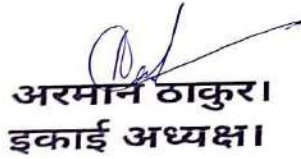 अरमान ठाकुर।
इकाई अध्यक्ष।